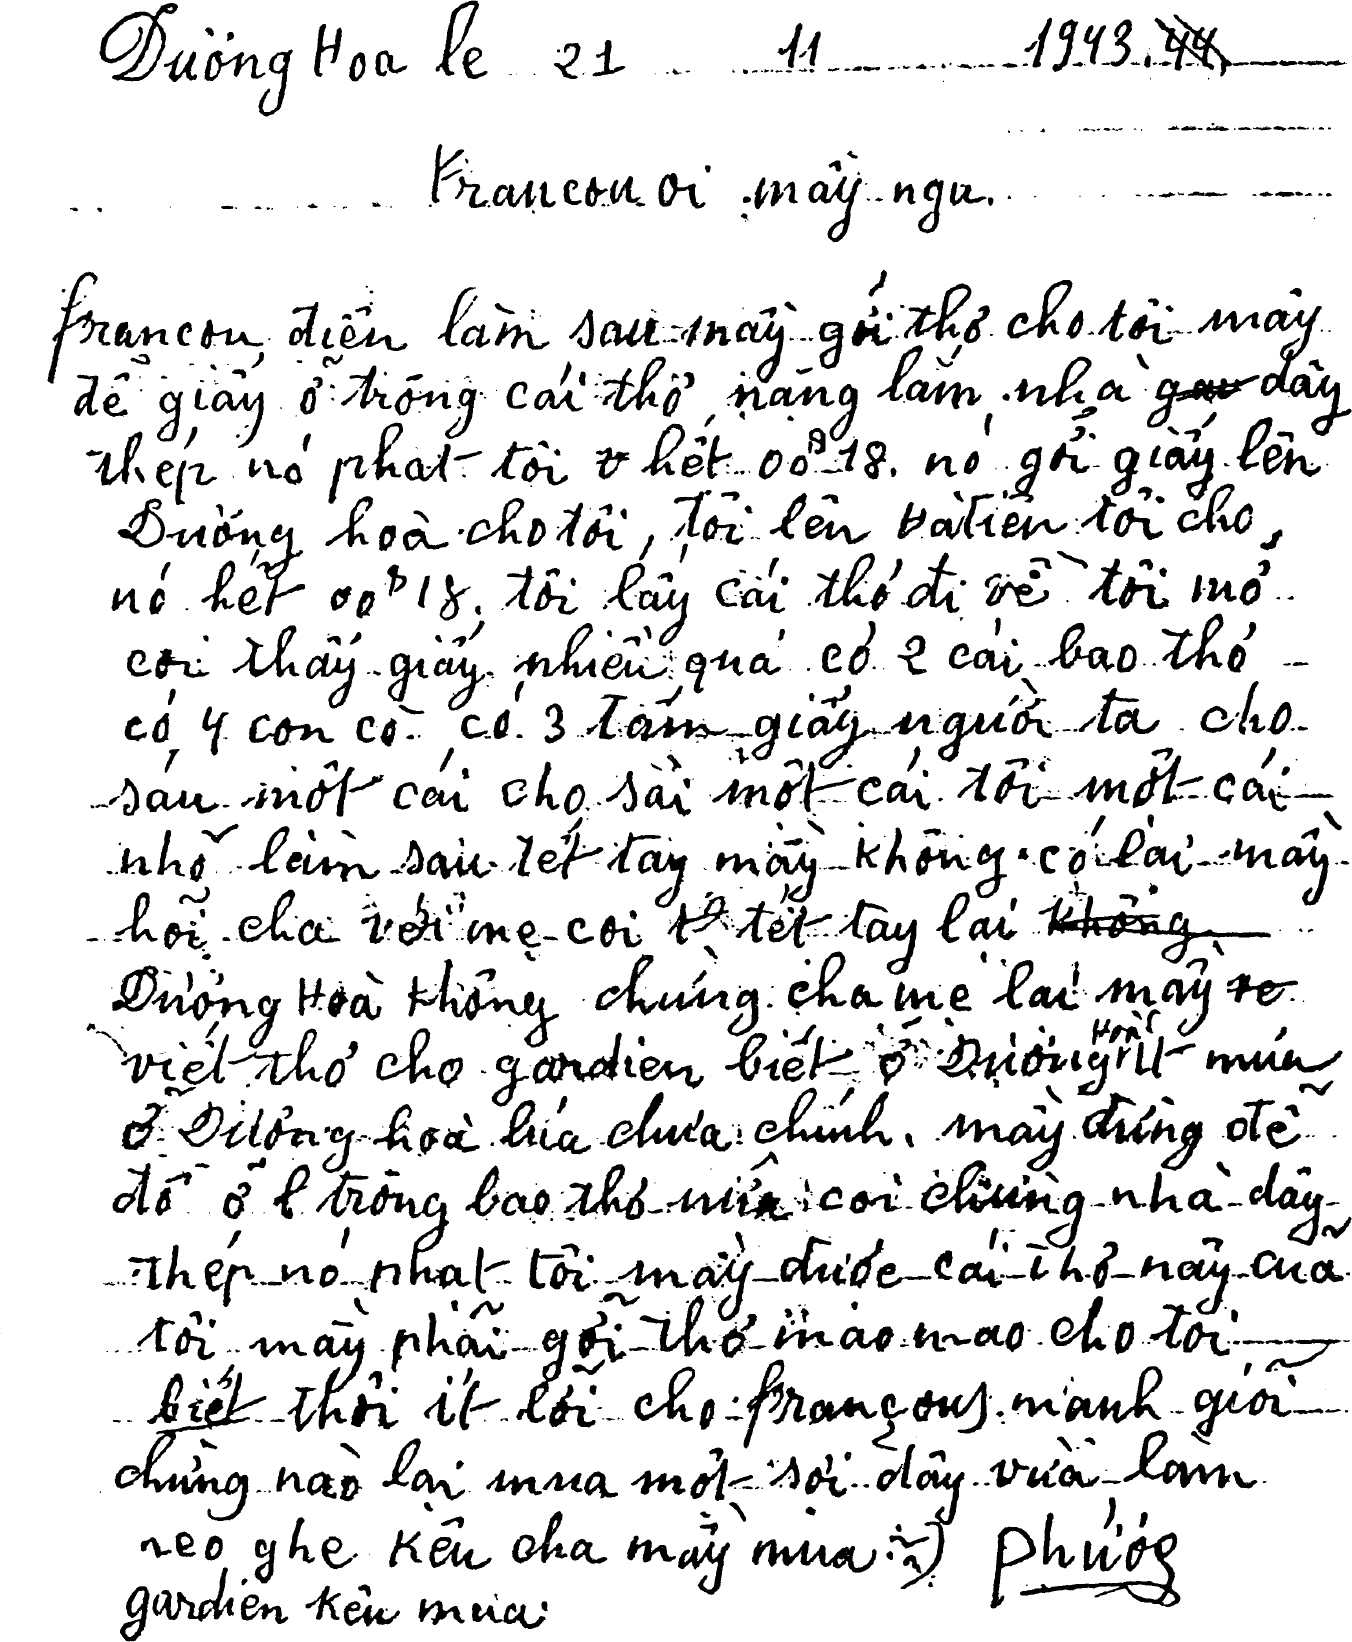 Dường Hoa le 21 11 1943.
Francou ơi mầy ngu.
francou, điên làm sau mầy gởi thơ cho tôi mầy
để giấy ở trông cái thơ nặng lắm, nhà dây
thép nó phạt tôi hết 00$18. nó gởi giấy lên
Dường hoà cho tôi, tôi lên Hà Tiên tôi cho
nó hết 00$18. tôi lấy cái thơ đi về tôi mở
coi thấy giấy nhiều quá có 2 cái bao thơ
có 4 con cò có 3 tấm giấy người ta cho
sáu một cái cho sài một cái tôi một cái
nhỏ làm sau tết tay mầy không có lại mầy
hỏi cha với mẹ coi tết tay lại
Dương Hoà không chừng cha mẹ lại mầy
viết thơ cho gardien biết ở Dường Hoà múa
ở Dường hoà lúa chưa chính. mầy đừng để
đồ ở trông bao thơ nửa coi chừng nhà dây
thép nó phạt tôi mầy được cái thơ nầy của
tôi mầy phải gởi thơ mao mao cho tôi
biết thôi ít lời cho françous mạnh giỏi
chừng nào lại mua một sợi dây vừa làm
neo ghe kêu cha mầy mua Phước
gardien kêu mua